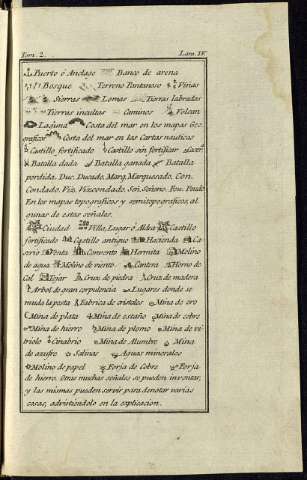 Tom. 2. Lam. IV
Puerto ó Anclage Banco de arena
Bosque Terreno Pantanoso Viñas
Sierras Lomas Tierras labradas
Tierras incultas Caminos Volcan
Laguna Costa del mar en los mapas Geo
graficos Costa del mar en las Cartas nauticas
Castillo fortificado Castillo sin fortificar
Batalla dada Batalla ganada Batalla
perdida. Duc. Ducado. Marq. Marquesado. Con.
Condado. Viz. Vizcondado. Señ. Señorio. Pou. Poudo
En los mapas topograficos y semitopograficos, al
gunas de estas señales.
Ciudad Villa, Lugar ó Aldea Castillo
fortificado Castillo antiguo Hacienda Ca
serio Venta Convento Hermita Molino
de agua Molino de viento Cantera Horno de
Cal Tejar Cruz de piedra Cruz de madera
Arbol de gran corpulencia Lugares donde se
muda la posta Fabrica de cristales Mina de oro
Mina de plata Mina de estaño Mina de cobre
Mina de hierro Mina de plomo Mina de vi
triolo Cinabrio Mina de Alumbre Mina
de azufre Salinas Aguas minerales
Molino de papel Forja de Cobre Forja
de hierro. Otras muchas señales se pueden inventar,
y las mismas pueden servir para denotar varias
cosas, advirtiendolo en la explicacion.